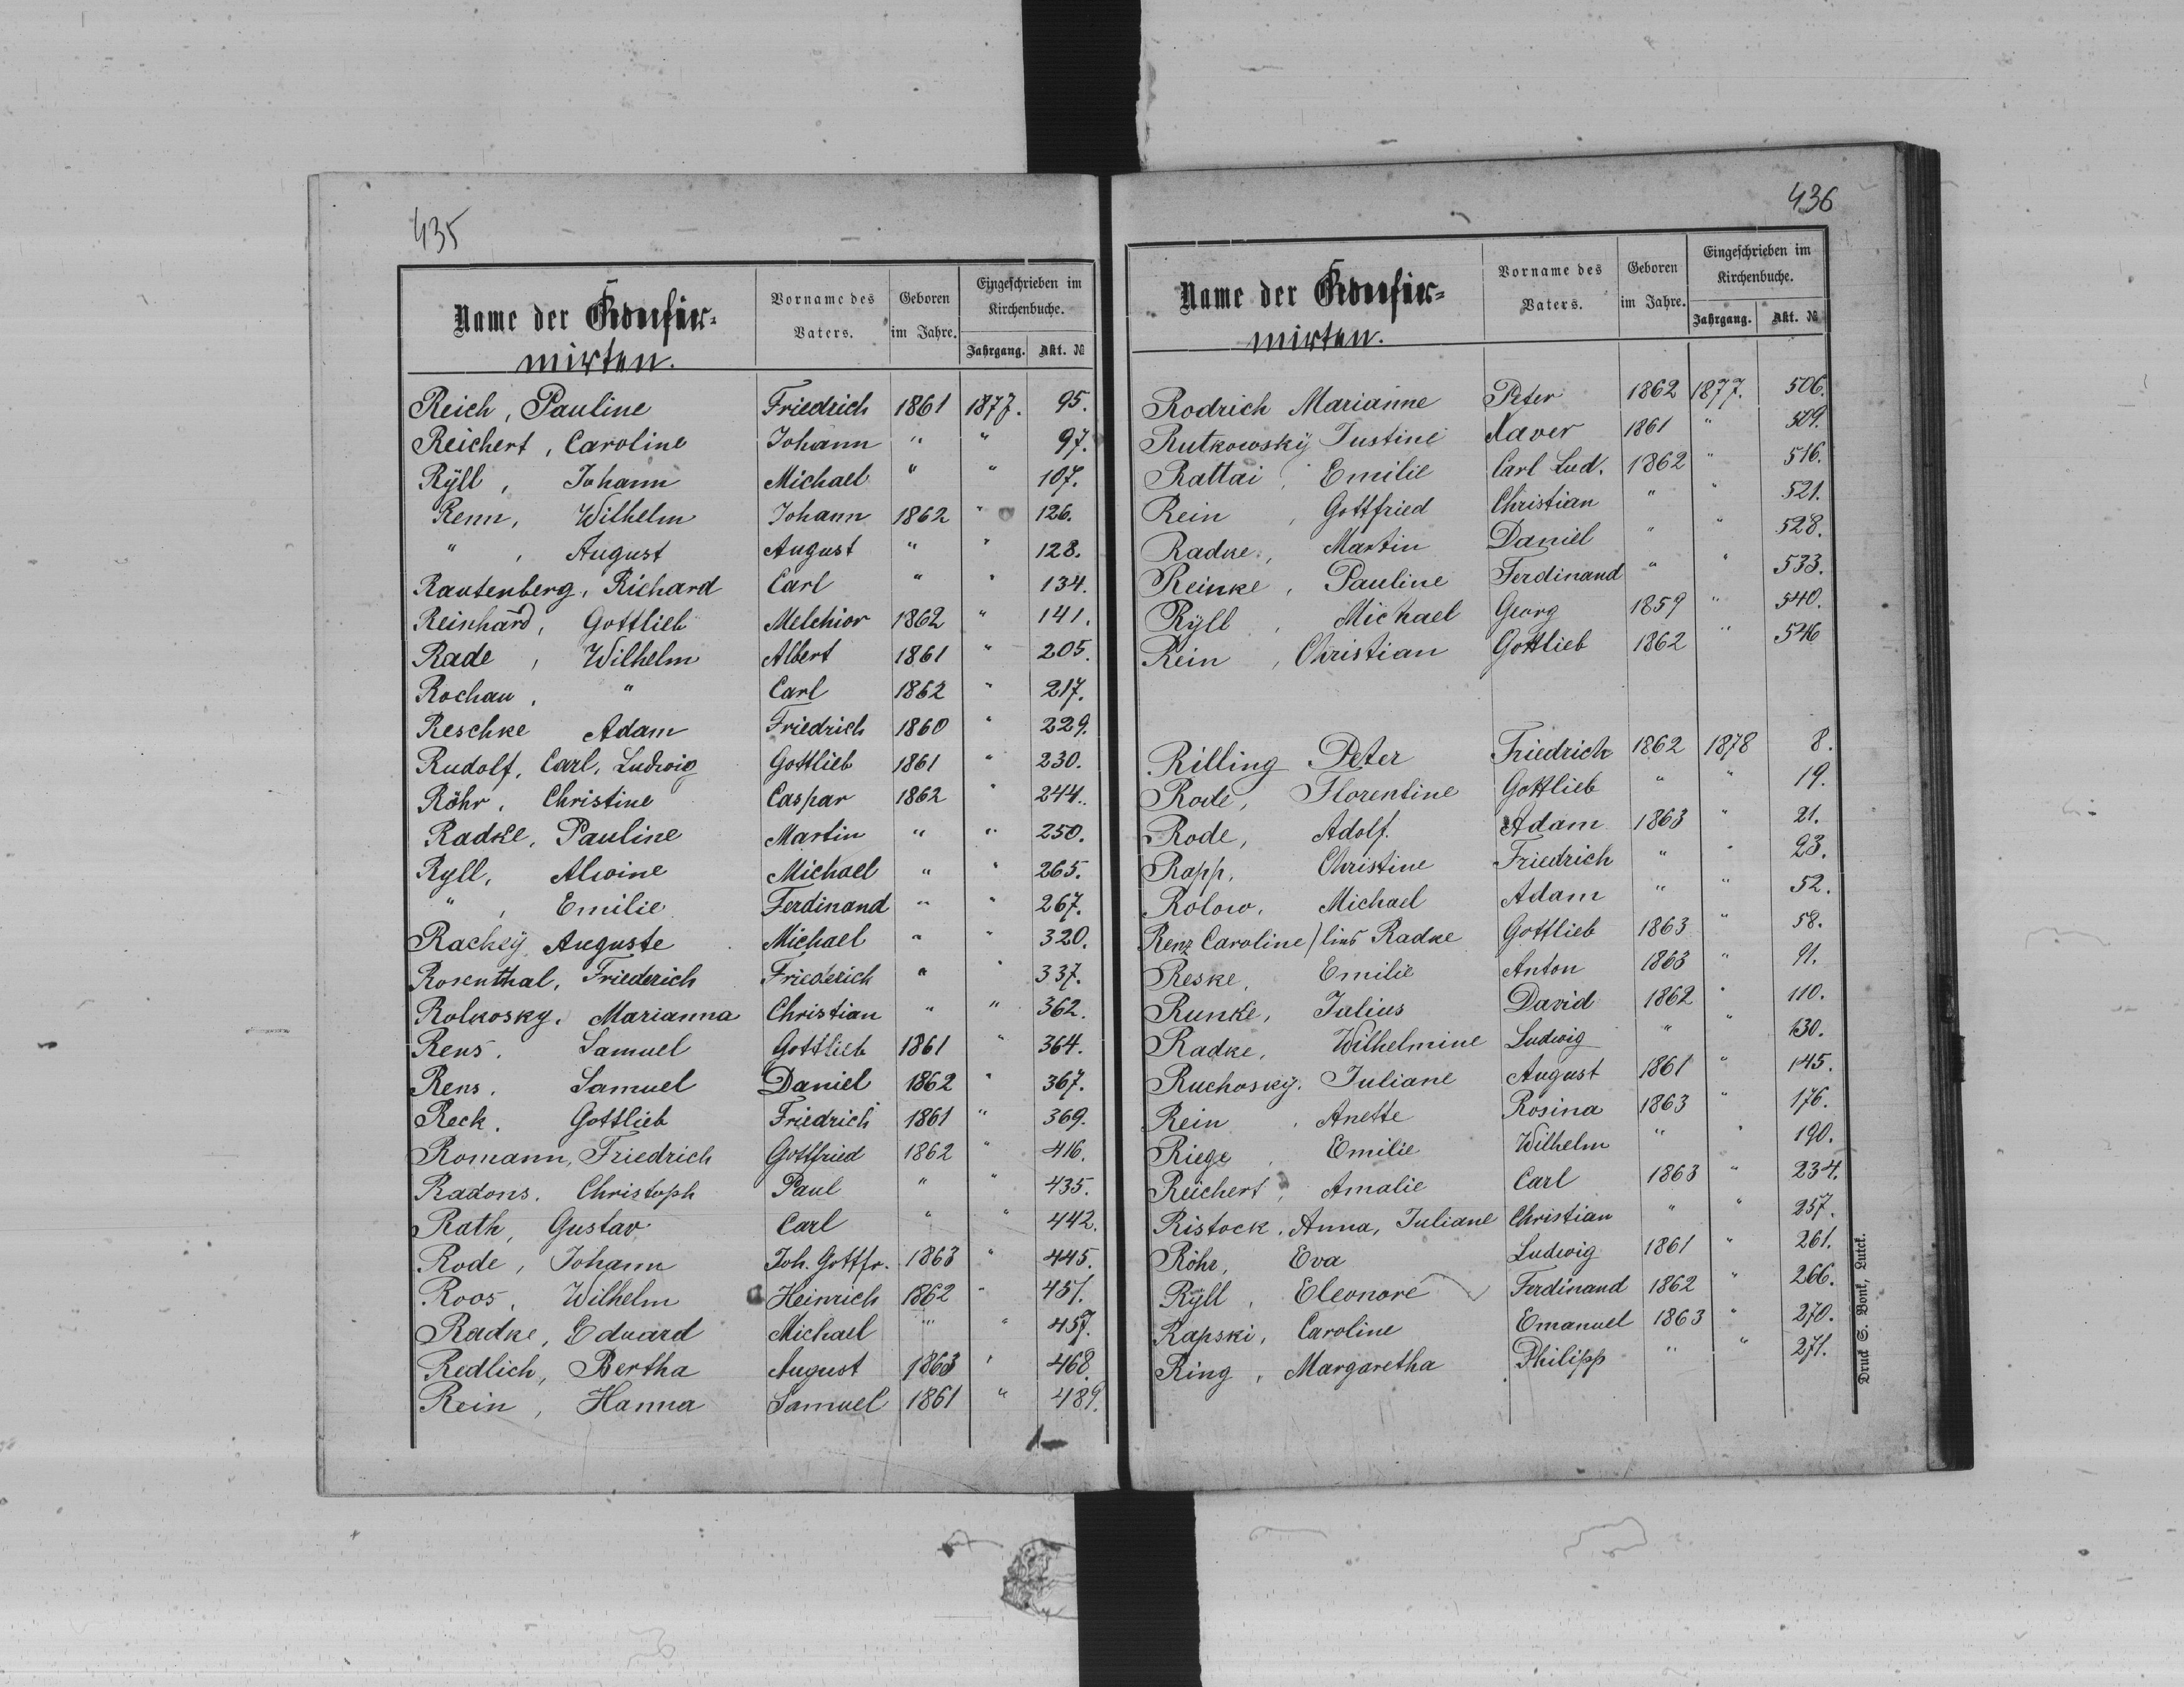 435
Name der Konfir-
mirten.
Vorname des Vaters.
Geboren im Jahre.
Eingeschrieben im Kirchenbuche.
Jahrgang. Akt. №
Reich, Pauline Friedrich 1861 1877. 95.
Reichert, Caroline Johann " " 97.
Rÿll, Johann Michael " " 107.
Renn, Wilhelm Johann 1862 " 126.
" , August August " " 128.
Rautenberg, Richard Carl " " 134.
Reinhard, Gottlieb Melchior 1862 " 141.
Rade, Wilhelm Albert 1861 " 205.
Rochau, " Carl 1862 " 217.
Reschke Adam Friedrich 1860 " 229.
Rudolf, Carl, Ludwig Gottlieb 1861 " 230.
Röhr, Christine Caspar 1862 " 244.
Radke, Pauline Martin " " 250.
Ryll, Alwine Michael " " 265.
" , Emilie Ferdinand " " 267.
Rackÿ, Auguste Michael " " 320.
Rosenthal, Friederich Friederich " " 337.
Rolkosky, Marianna Christian " " 362.
Rens, Samuel Gottlieb 1861 " 364.
Rens, Samuel Daniel 1862 " 367.
Reck, Gottlieb Friedrich 1861 " 369.
Romann, Friedrich Gottfried 1862 " 416.
Radons, Christoph Paul " " 435.
Rath, Gustav Carl " " 442.
Rode, Johann Joh. Gottfr. 1863 " 445.
Roos, Wilhelm Heinrich 1862 " 451.
Radke, Eduard Michael " " 457.
Redlich, Bertha August 1863 " 468.
Rein, Hanna Samuel 1861 " 489.
436
Name der Konfir-
mirten.
Vorname des Vaters.
Geboren im Jahre.
Eingeschrieben im Kirchenbuche.
Jahrgang. Akt. №
Rodrich Marianne Peter 1862 1877. 506.
Rutkowskÿ Justine Xaver 1861 " 509.
Rattai, Emilie Carl Lud. 1862 " 516.
Rein, Gottfried Christian " " 521.
Radke, Martin Daniel " " 528.
Reinke, Pauline Ferdinand " " 533.
Rÿll, Michael Georg 1859 " 540.
Rein, Christian Gottlieb 1862 " 546
Rilling Peter Friedrich 1862 1878 8.
Rode, Florentine Gottlieb " " 19.
Rode, Adolf. Adam 1863 " 21.
Rapp, Christine Friedrich " " 23.
Rolow, Michael Adam " " 52.
Renz Caroline / lies Radke Gottlieb 1863 " 58.
Reske, Emilie Anton 1863 " 91.
Runke, Julius David 1862 " 110.
Radke, Wilhelmine Ludwig " " 130.
Ruchoskÿ, Juliane August 1861 " 145.
Rein, Anette Rosina 1863 " 176.
Riege, Emilie Wilhelm " " 190.
Reichert, Amalie Carl 1863 " 234.
Ristock, Anna, Juliane Christian " " 257.
Röhr, Eva Ludwig 1861 " 261.
Rÿll, Eleonore Ferdinand 1862 " 266.
Rapski, Caroline Emanuel 1863 " 270.
Ring, Margaretha Philipp " " 271.
Druck S. Bonk, Lutck.